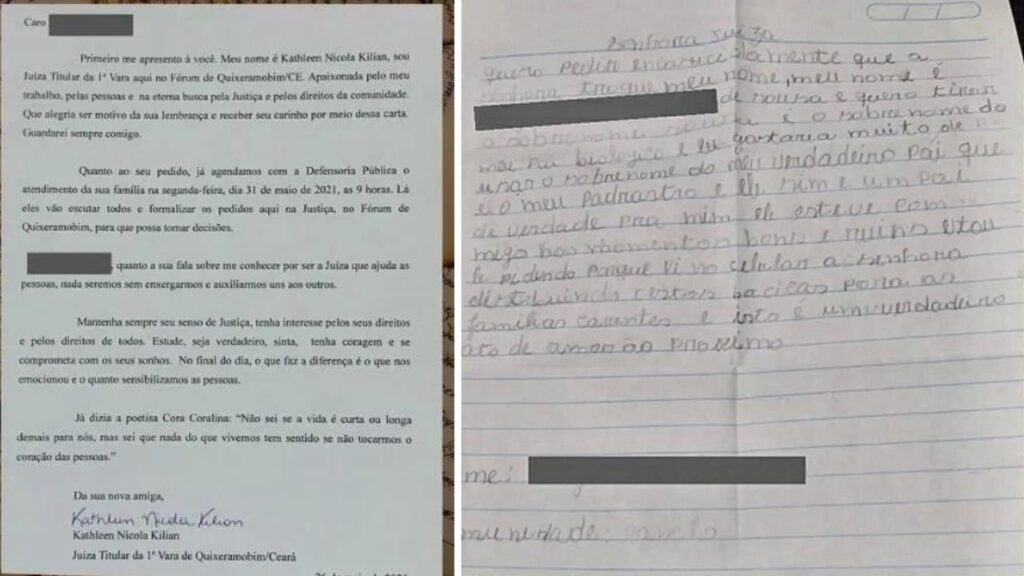 Caro
Primeiro me apresento à você. Meu nome é Kathleen Nicola Kilian, sou
Juíza Titular da 1ª Vara aqui no Fórum de Quixeramobim/CE. Apaixonada pelo meu
trabalho, pelas pessoas e na eterna busca pela Justiça e pelos direitos da comunidade.
Que alegria ser motivo da sua lembrança e receber seu carinho por meio dessa carta.
Guardarei sempre comigo.
Quanto ao seu pedido, já agendamos com a Defensoria Pública o
atendimento da sua família na segunda-feira, dia 31 de maio de 2021, as 9 horas. Lá
eles vão escutar todos e formalizar os pedidos aqui na Justiça, no Fórum de
Quixeramobim, para que possa tomar decisões.
, quanto a sua fala sobre me conhecer por ser a Juíza que ajuda as
pessoas, nada seremos sem enxergarmos e auxiliarmos uns aos outros.
Mantenha sempre seu senso de Justiça, tenha interesse pelos seus direitos
e pelos direitos de todos. Estude, seja verdadeiro, sinta, tenha coragem e se
comprometa com os seus sonhos. No final do dia, o que faz a diferença é o que nos
emocionou e o quanto sensibilizamos as pessoas.
Já dizia a poetisa Cora Coralina: “Não sei se a vida é curta ou longa
demais para nós, mas sei que nada do que vivemos tem sentido se não tocarmos o
coração das pessoas.”
Da sua nova amiga,
Kathleen Nicola Kilian
Kathleen Nicola Kilian
Juíza Titular da 1ª Vara de Quixeramobim/Ceará
senhora Juíza
quero pedir que a
senhora troque meu nome, meu nome é
de sousa e quero tirar
o sobrenome e o sobrenome do
meu pai biologico e eu gostaria muito de
usar o sobrenome do meu verdadeiro pai que
é o meu padrastro e ele sim e um pai
de verdade pra mim ele esteve com
migo nos momentos bons e ruins estou
le pidindo porque vi no celular a senhora
distribuindo cestas bacicas para as
familias carentes e isto é um verdadeiro
ato de amor ao proximo
me:
munidade: